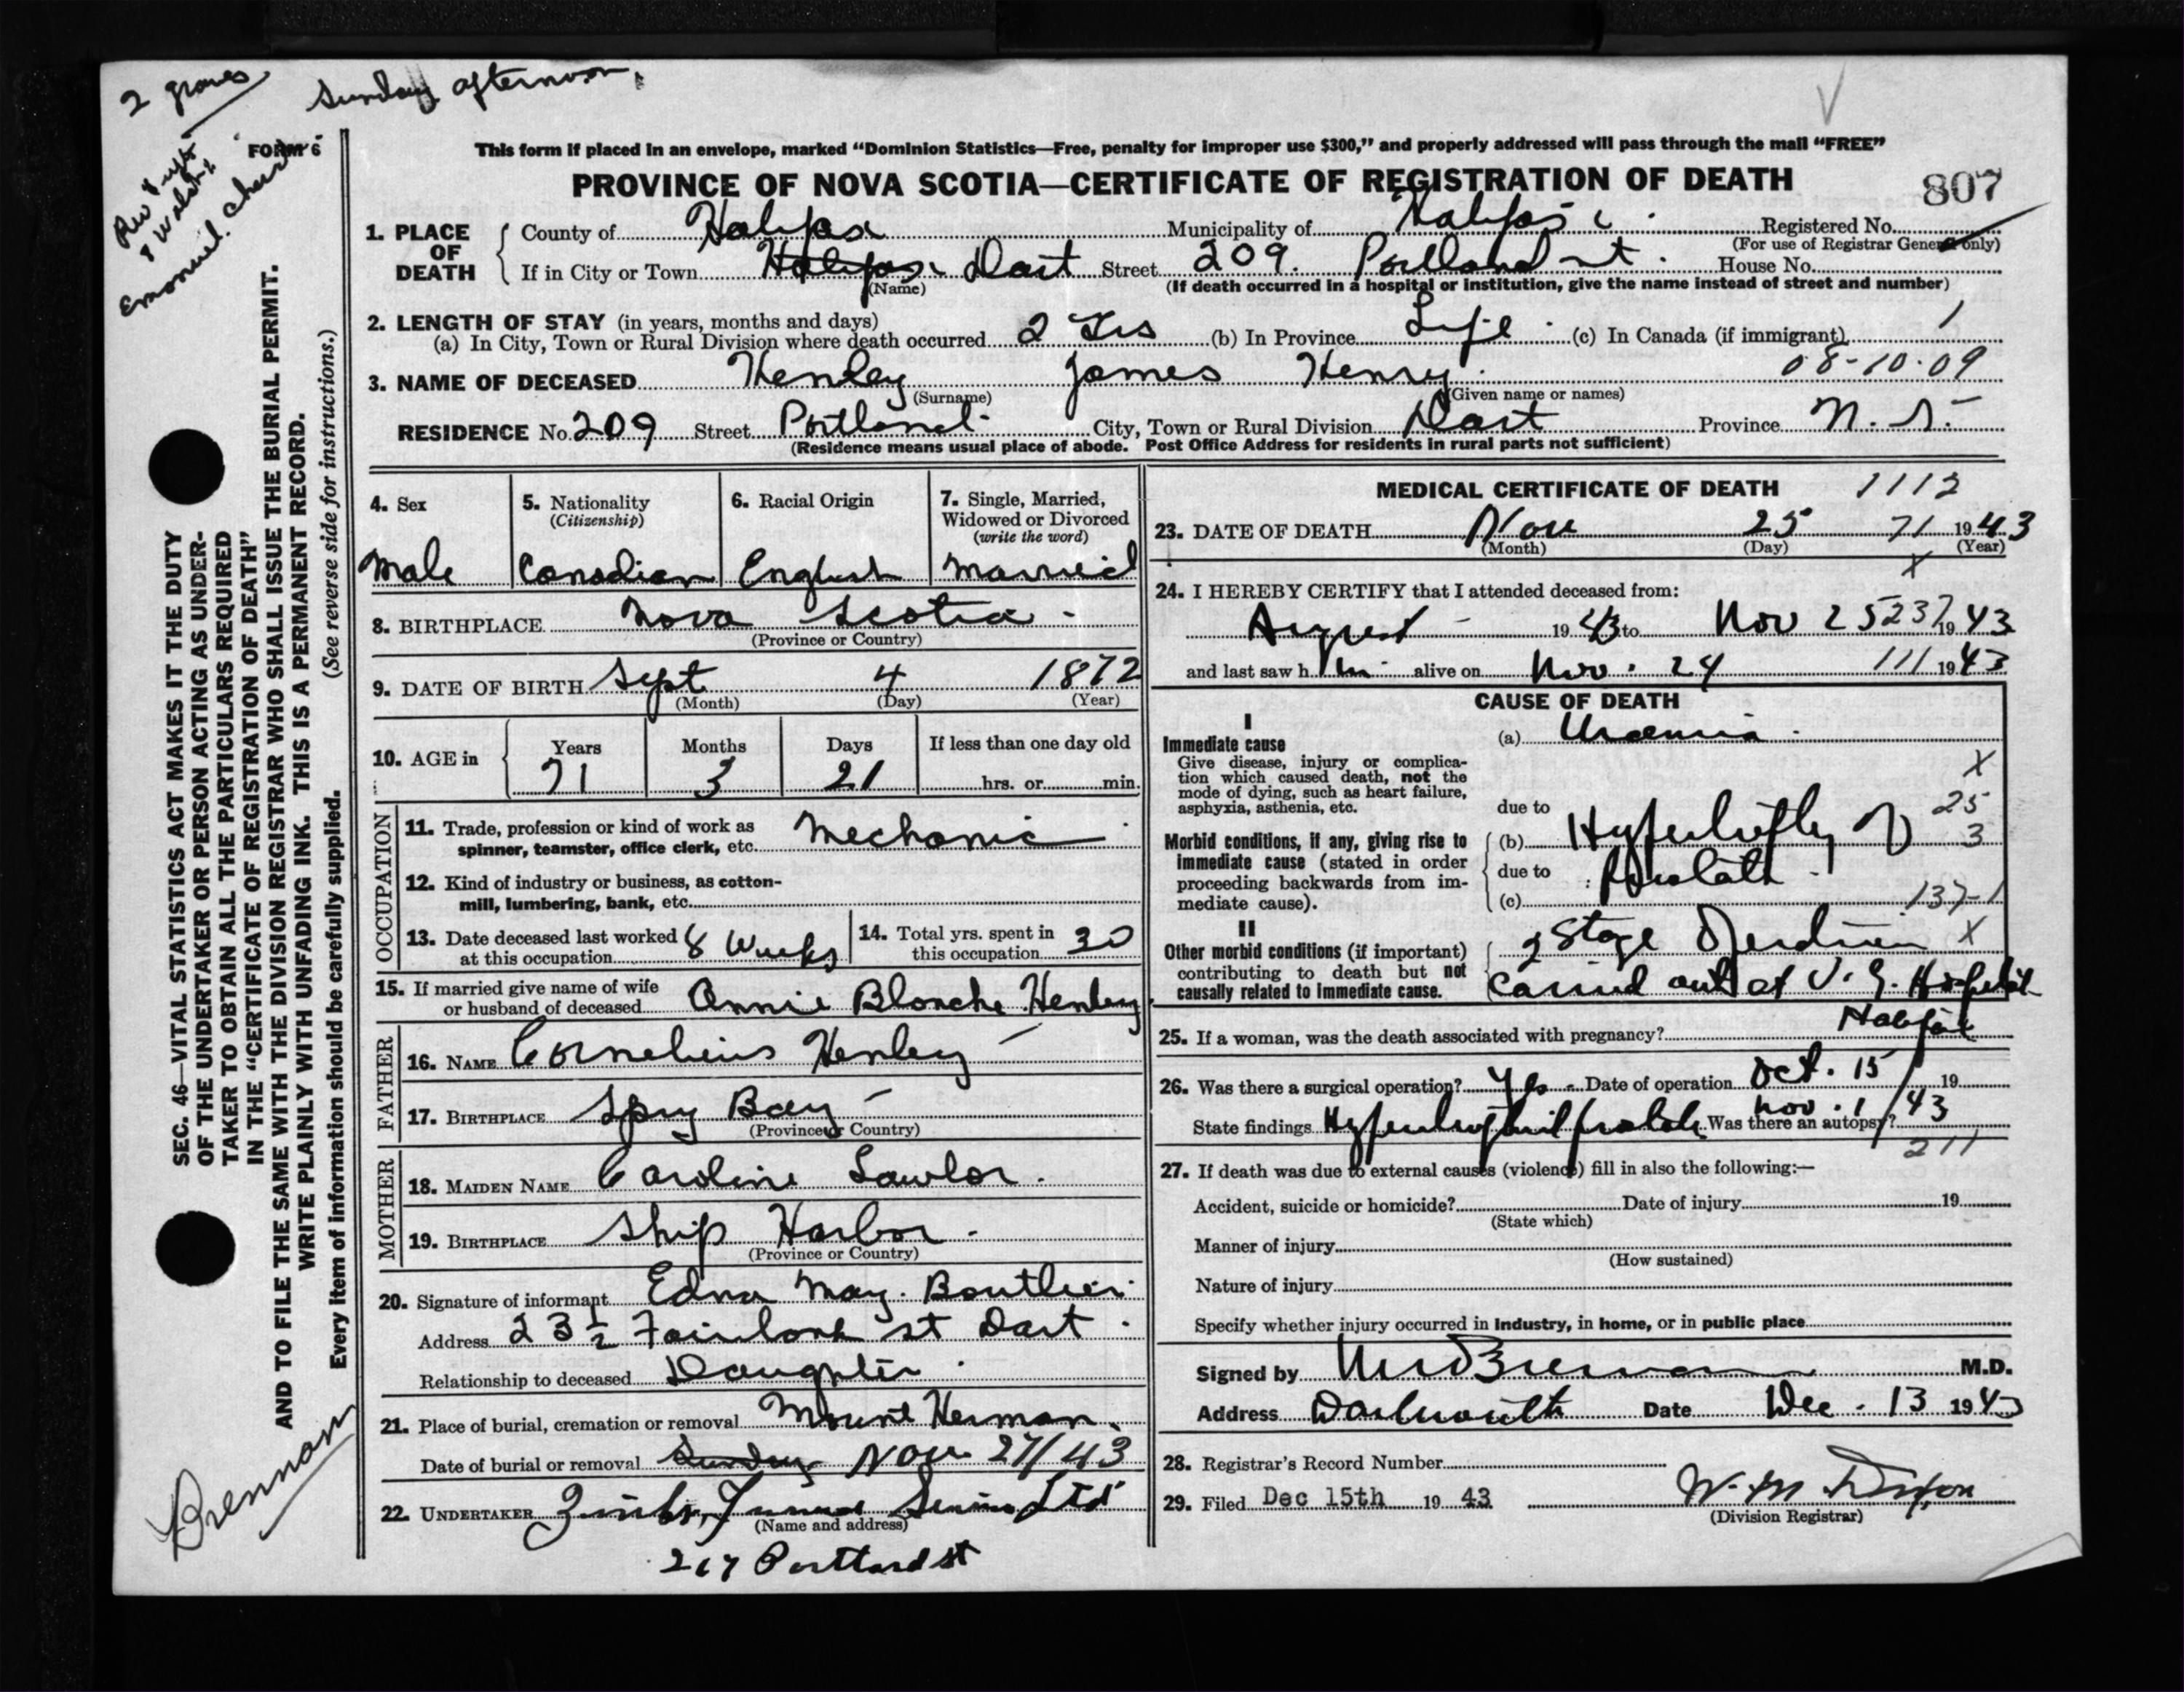 2 graves
Sunday afternoon,
FORM 6
Emanuel. Church
This form if placed in an envelope, marked “Dominion Statistics—Free, penalty for improper use $300,” and properly addressed will pass through the mail “FREE”
PROVINCE OF NOVA SCOTIA—CERTIFICATE OF REGISTRATION OF DEATH
807
1. PLACE OF DEATH
County of Halifax Municipality of Halifax Registered No.
(For use of Registrar General only)
If in City or Town Halifax Dart Street 209. Portland st. House No.
(Name) (If death occurred in a hospital or institution, give the name instead of street and number)
2. LENGTH OF STAY (in years, months and days)
(a) In City, Town or Rural Division where death occurred 2 Yrs (b) In Province Life (c) In Canada (if immigrant) 1
08-10-09
3. NAME OF DECEASED Henley James Henry
(Surname) (Given name or names)
RESIDENCE No. 209 Street Portland City, Town or Rural Division Dart Province N.S.
(Residence means usual place of abode. Post Office Address for residents in rural parts not sufficient)
4. Sex
Male
5. Nationality
(Citizenship)
Canadian
6. Racial Origin
English
7. Single, Married,
Widowed or Divorced
(write the word)
Married
8. BIRTHPLACE Nova Scotia
(Province or Country)
9. DATE OF BIRTH Sept 4 1872
(Month) (Day) (Year)
10. AGE in
Years Months Days If less than one day old
71 3 21 hrs. or min.
OCCUPATION
11. Trade, profession or kind of work as
spinner, teamster, office clerk, etc. Mechanic
12. Kind of industry or business, as cotton-
mill, lumbering, bank, etc.
13. Date deceased last worked
at this occupation 8 Weeks
14. Total yrs. spent in
this occupation 30
15. If married give name of wife
or husband of deceased Annie Blanche Henley
FATHER
16. NAME Cornelius Henley
17. BIRTHPLACE Spry Bay
(Province or Country)
MOTHER
18. MAIDEN NAME Caroline Lawlor.
19. BIRTHPLACE Ship Harbor
(Province or Country)
20. Signature of informant Edna May. Boutlier
Address 23 1/2 Fairbank st Dart
Relationship to deceased Daughter
21. Place of burial, cremation or removal Mount Herman.
Date of burial or removal Sunday Nov 27/43
22. UNDERTAKER Funeral Service Ltd
(Name and address)
267 Portland st
MEDICAL CERTIFICATE OF DEATH 1112
23. DATE OF DEATH Nov 25 71 1943
(Month) (Day) (Year)
X
24. I HEREBY CERTIFY that I attended deceased from:
August 1943 to Nov 25 237 1943
and last saw him alive on Nov. 24 111 1943
CAUSE OF DEATH
I
Immediate cause
Give disease, injury or complica-
tion which caused death, not the
mode of dying, such as heart failure,
asphyxia, asthenia, etc.
(a) Uraemia
X
due to
25
Morbid conditions, if any, giving rise to
immediate cause (stated in order
proceeding backwards from im-
mediate cause).
(b) Hypertrophy of 3
due to Prostate
(c) 137-1
II
Other morbid conditions (if important)
contributing to death but not
causally related to immediate cause.
2 Stage X
carried out at V. G. Hospital
Halifax
25. If a woman, was the death associated with pregnancy?
26. Was there a surgical operation? Yes Date of operation Oct. 15 19
Nov. 1/43
State findings Hypertrophied prostate Was there an autopsy?
211
27. If death was due to external causes (violence) fill in also the following:—
Accident, suicide or homicide? Date of injury 19
(State which)
Manner of injury
(How sustained)
Nature of injury
Specify whether injury occurred in Industry, in home, or in public place
Signed by Brennan M.D.
Address Dartmouth Date Dec. 13 1943
28. Registrar’s Record Number
29. Filed Dec 15th 19 43
(Division Registrar)
SEC. 46—VITAL STATISTICS ACT MAKES IT THE DUTY
OF THE UNDERTAKER OR PERSON ACTING AS UNDER-
TAKER TO OBTAIN ALL THE PARTICULARS REQUIRED
IN THE “CERTIFICATE OF REGISTRATION OF DEATH”
AND TO FILE THE SAME WITH THE DIVISION REGISTRAR WHO SHALL ISSUE THE BURIAL PERMIT.
WRITE PLAINLY WITH UNFADING INK. THIS IS A PERMANENT RECORD.
Every item of information should be carefully supplied. (See reverse side for instructions.)
Brennan